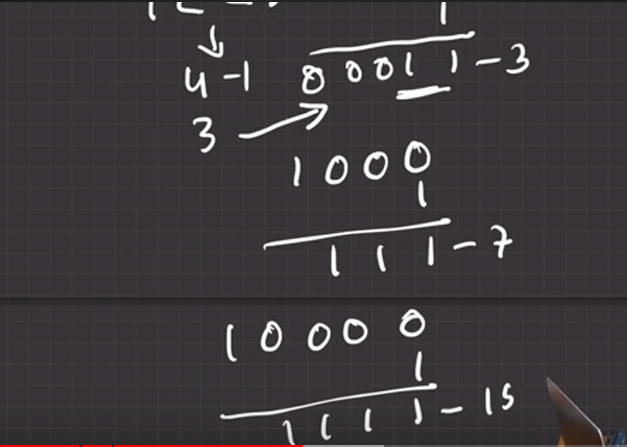 1
4 - 1 0 0 0 1 1 - 3
3
1 0 0 0
1
1 1 1 - 7
1 0 0 0 0
1
1 1 1 1 - 15